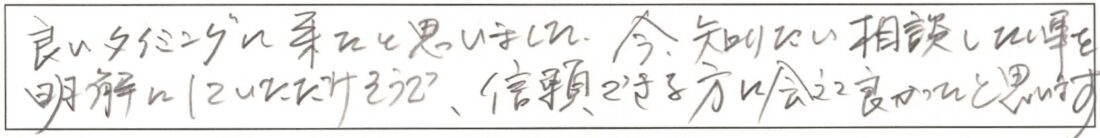 良いタイミングに来たと思いました。今、知りたい相談したい事を
明解にしていただけそうで、信頼できる方に会えて良かったと思います